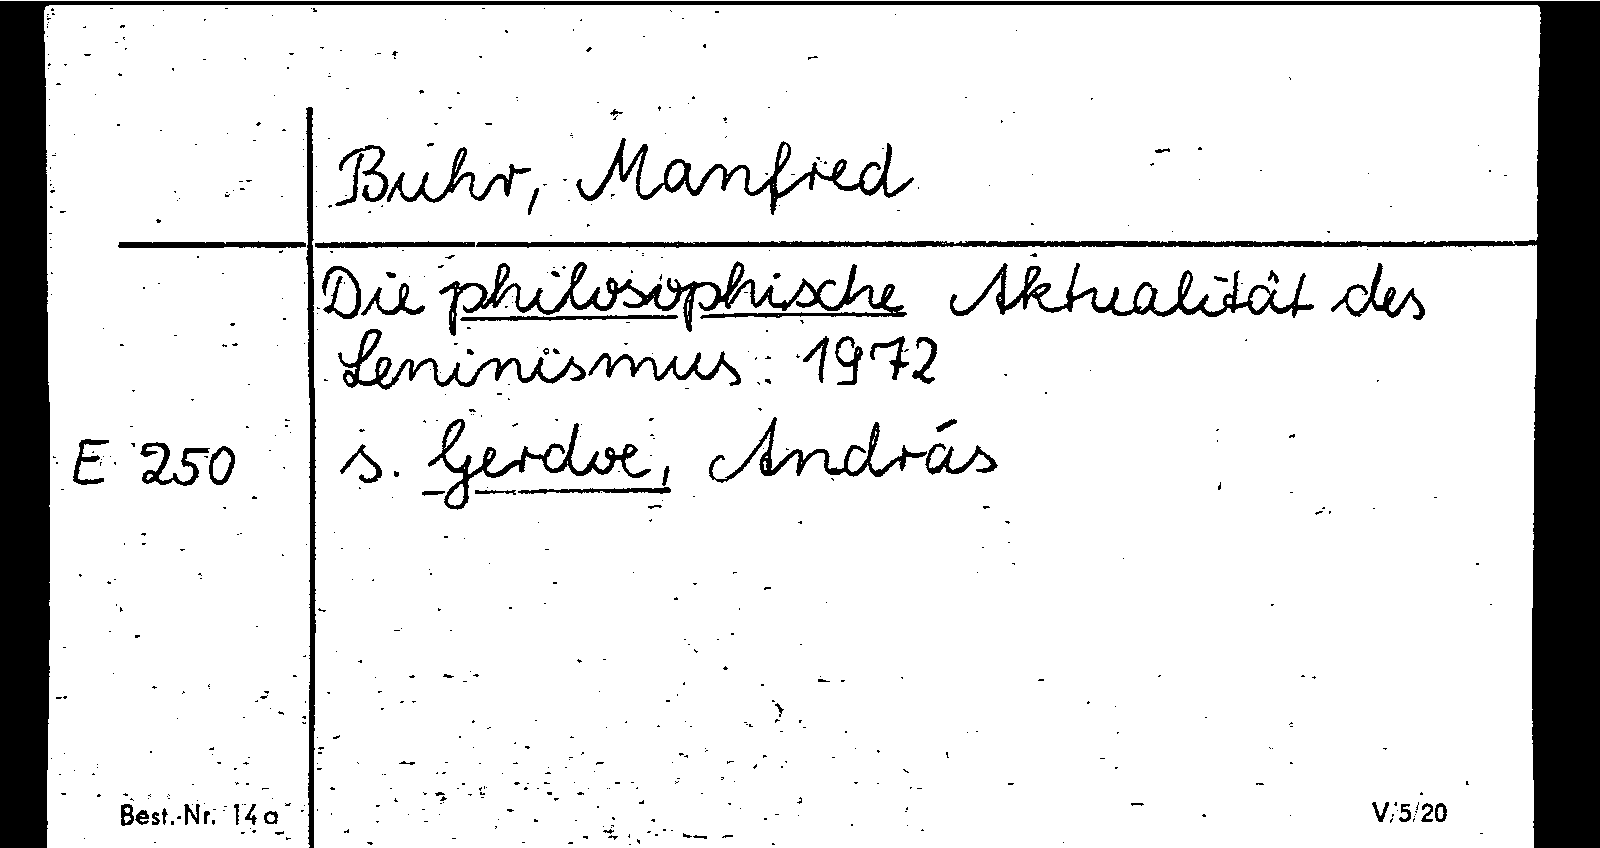 Buhr, Manfred
Die philosophische Aktualität des
Leninismus. 1972
E 250 s. Gerdoe, András
Best.-Nr. 14a V/5/20